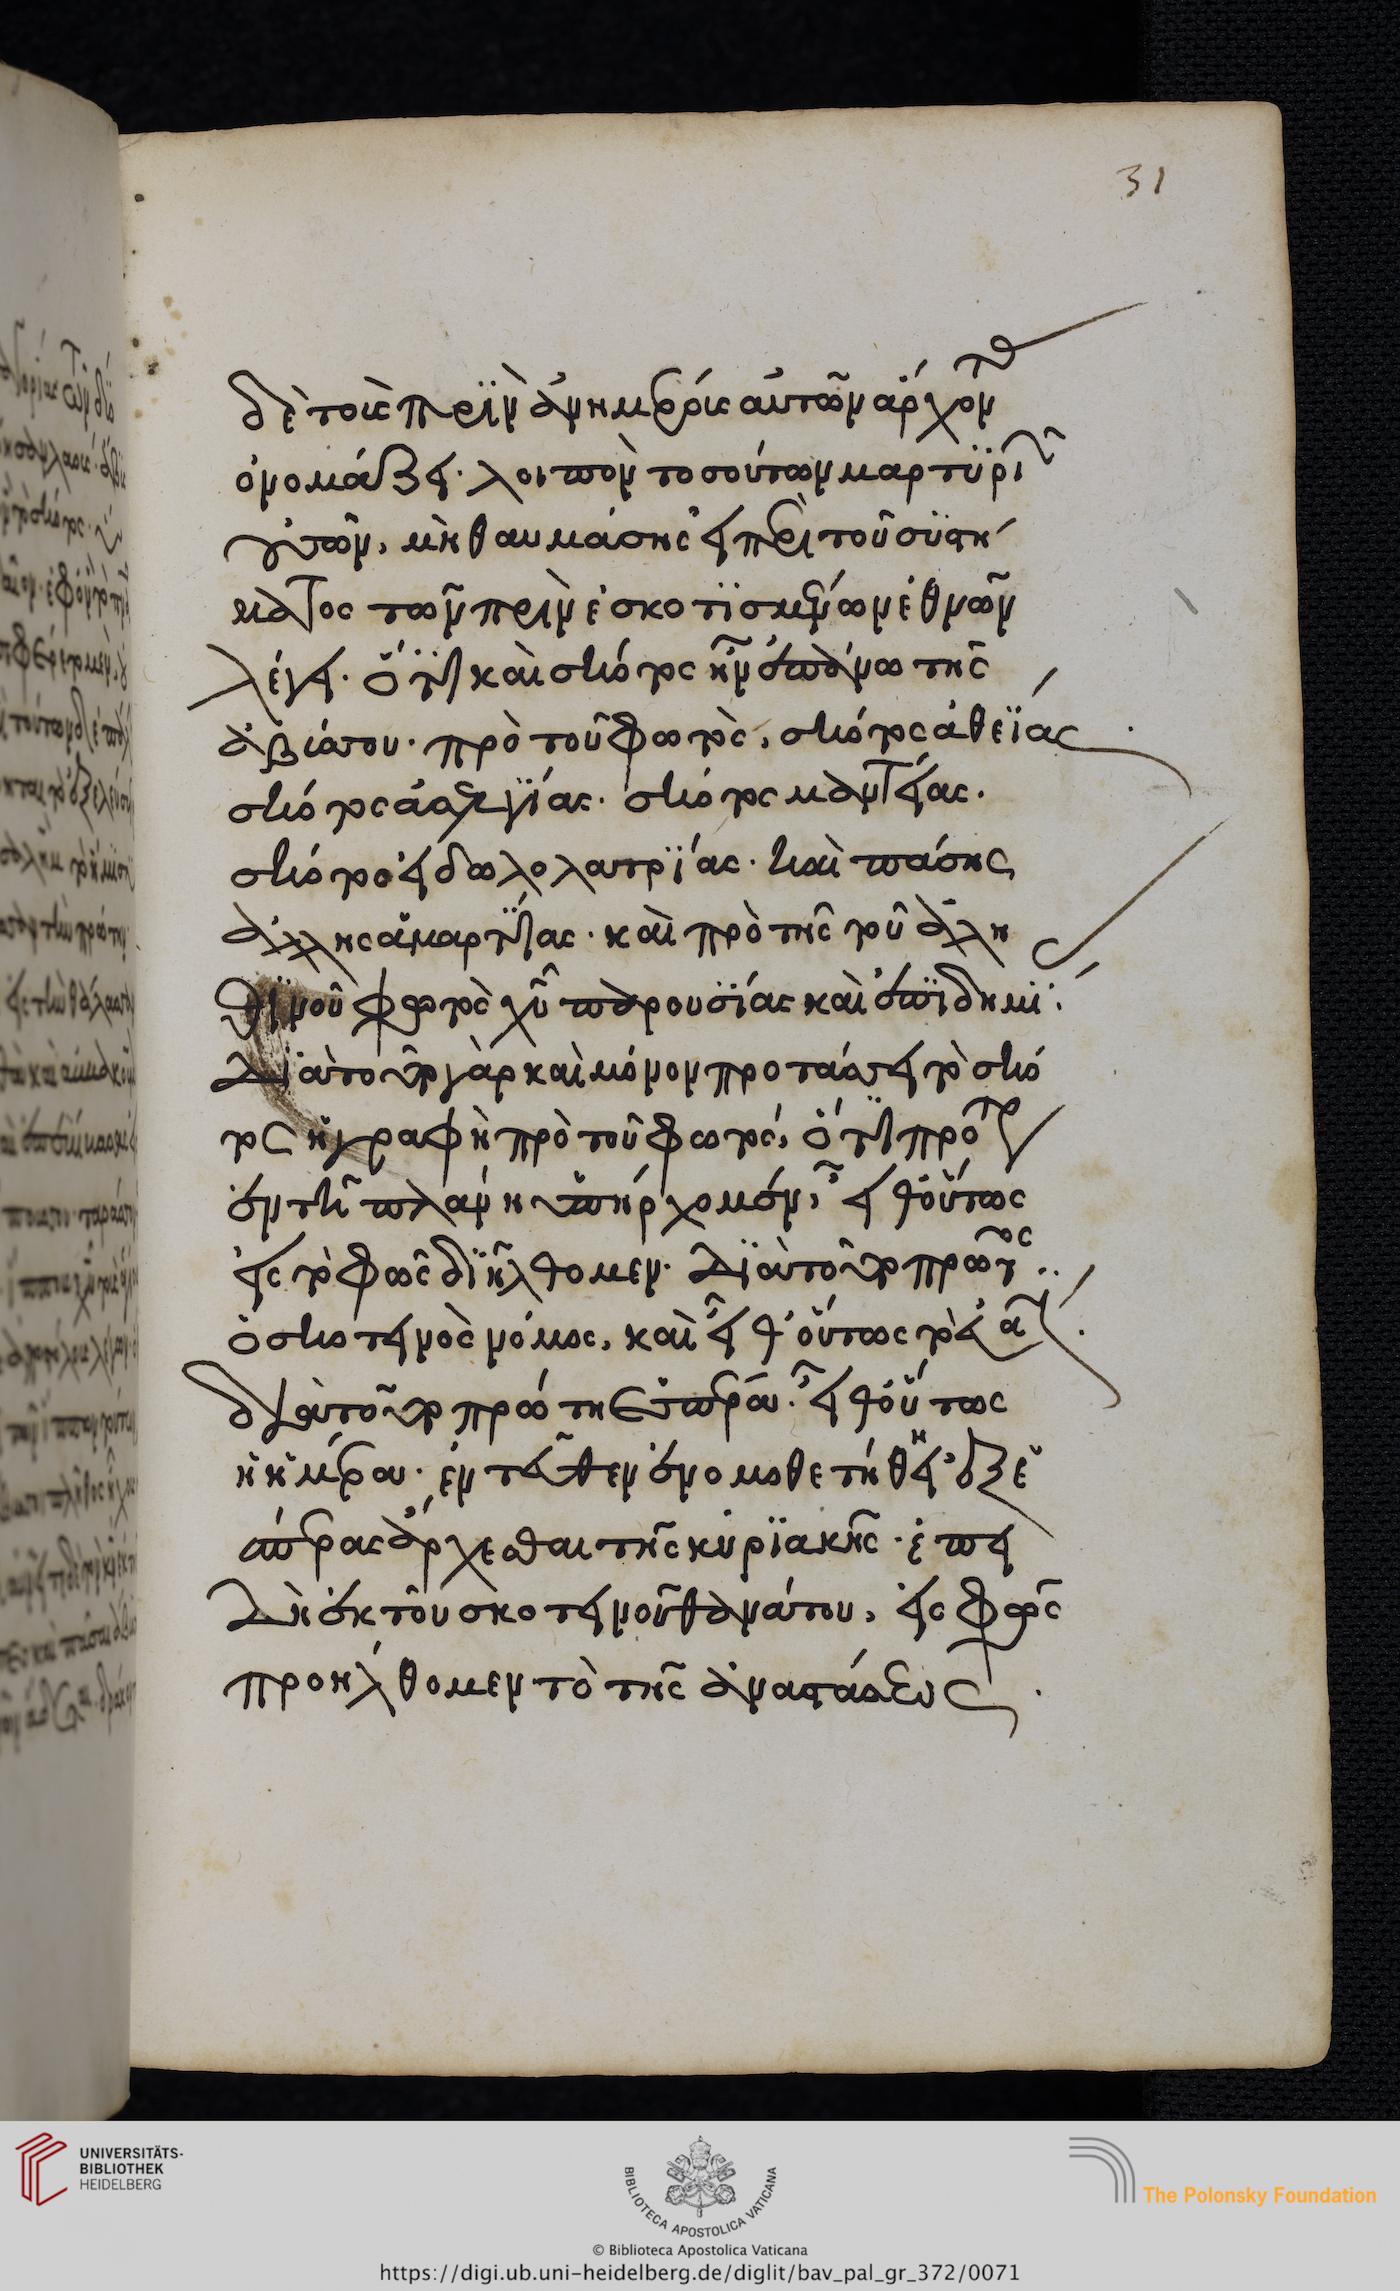 31
δὲ τοῖς πρὶν ἀνημέροις αὐτῶν ἄρχοντ
ὀνομάζει. λοιπὸν τοσούτων μαρτϋρι
μὴ θαυμάσης εἰ περὶ τοῦ σϋστή
ματος τῶν πρὶν ἐσκοτϊσμένων ἐθνῶν
λέγει. ὅτϊ καὶ σκότος ἦν ἐπάνω τῆς
ἀβύσσου. πρὸ τοῦ φωτὸς, σκότος ἀθεΐας
σκότος ἀσελγϊίας. σκότος μαντείας.
σκότος εἰδωλολατρϊίας. καὶ πάσης
ἄλλης ἁμαρτϊίας. καὶ πρὸ τῆς τοῦ ἀλη
θϊνοῦ φωτὸς χῦ παρουσϊίας καὶ ἐπϊδημϊ
Δϊατοῦτο γὰρ καὶ μόνον προτάσσει τὸ σκό
τος ἡ γραφὴ πρὸ τοῦ φωτός, ὅτϊ πρότερ
ἐν τῆ πλάνη ὑπήρχομεν, εἶθ οὕτως
εἰς τὸ φῶς διῆλθομεν. Δϊατοῦτο πρῶτος
ὁ σκοτεινὸς νόμος, καὶ εἶθ οὕτως τὸ
διατοῦτο πρώτη ἑσπέρα. εἶθ οὕτως
ἡ ἡμέρα. ἐντεῦθεν ἐνομοθετήθη ἐξ ἑ
σπέρας ἄρχεσθαι τῆς κυρϊακῆς. ἐπει
Δὴ ἐκ τοῦ σκοτεινοῦ θανάτου, εἰς φῶς
προήλθομεν τὸ τῆς ἀναστάσεως.
UNIVERSITÄTS-
BIBLIOTHEK
HEIDELBERG
BIBLIOTECA APOSTOLICA VATICANA
The Polonsky Foundation
© Biblioteca Apostolica Vaticana
https://digi.ub.uni-heidelberg.de/diglit/bav_pal_gr_372/0071